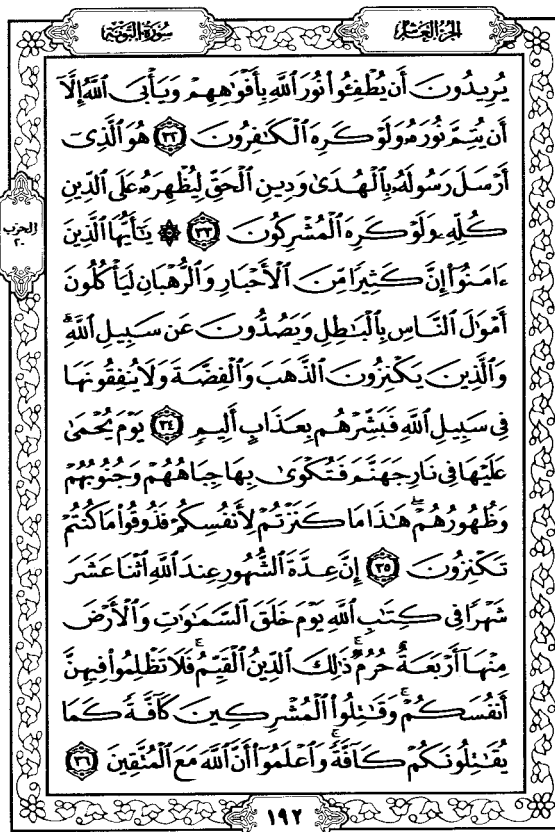 سورة التوبة
الجزء العاشر
يُرِيدُونَ أَن يُطْفِـُٔوا۟ نُورَ ٱللَّهِ بِأَفْوَٰهِهِمْ وَيَأْبَى ٱللَّهُ إِلَّآ
أَن يُتِمَّ نُورَهُۥ وَلَوْ كَرِهَ ٱلْكَٰفِرُونَ ٣٢ هُوَ ٱلَّذِىٓ
أَرْسَلَ رَسُولَهُۥ بِٱلْهُدَىٰ وَدِينِ ٱلْحَقِّ لِيُظْهِرَهُۥ عَلَى ٱلدِّينِ
كُلِّهِۦ وَلَوْ كَرِهَ ٱلْمُشْرِكُونَ ٣٣ ۞ يَٰٓأَيُّهَا ٱلَّذِينَ
الحزب
٢٠
ءَامَنُوٓا۟ إِنَّ كَثِيرًا مِّنَ ٱلْأَحْبَارِ وَٱلرُّهْبَانِ لَيَأْكُلُونَ
أَمْوَٰلَ ٱلنَّاسِ بِٱلْبَٰطِلِ وَيَصُدُّونَ عَن سَبِيلِ ٱللَّهِ ۗ
وَٱلَّذِينَ يَكْنِزُونَ ٱلذَّهَبَ وَٱلْفِضَّةَ وَلَا يُنفِقُونَهَا
فِى سَبِيلِ ٱللَّهِ فَبَشِّرْهُم بِعَذَابٍ أَلِيمٍ ٣٤ يَوْمَ يُحْمَىٰ
عَلَيْهَا فِى نَارِ جَهَنَّمَ فَتُكْوَىٰ بِهَا جِبَاهُهُمْ وَجُنُوبُهُمْ
وَظُهُورُهُمْ ۖ هَٰذَا مَا كَنَزْتُمْ لِأَنفُسِكُمْ فَذُوقُوا۟ مَا كُنتُمْ
تَكْنِزُونَ ٣٥ إِنَّ عِدَّةَ ٱلشُّهُورِ عِندَ ٱللَّهِ ٱثْنَا عَشَرَ
شَهْرًا فِى كِتَٰبِ ٱللَّهِ يَوْمَ خَلَقَ ٱلسَّمَٰوَٰتِ وَٱلْأَرْضَ
مِنْهَآ أَرْبَعَةٌ حُرُمٌ ۚ ذَٰلِكَ ٱلدِّينُ ٱلْقَيِّمُ ۚ فَلَا تَظْلِمُوا۟ فِيهِنَّ
أَنفُسَكُمْ ۚ وَقَٰتِلُوا۟ ٱلْمُشْرِكِينَ كَآفَّةً كَمَا
يُقَٰتِلُونَكُمْ كَآفَّةً ۚ وَٱعْلَمُوٓا۟ أَنَّ ٱللَّهَ مَعَ ٱلْمُتَّقِينَ ٣٦
١٩٢